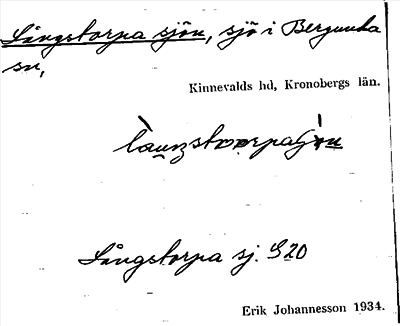 Långstorpa sjön, sjö i Bergunda
sn,
Kinnevalds hd, Kronobergs län.
Långstorpa sj. G20
Erik Johannesson 1934.